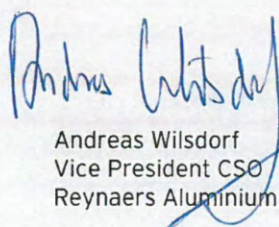 Andreas Wilsdorf
Andreas Wilsdorf
Vice President CSO
Reynaers Aluminium